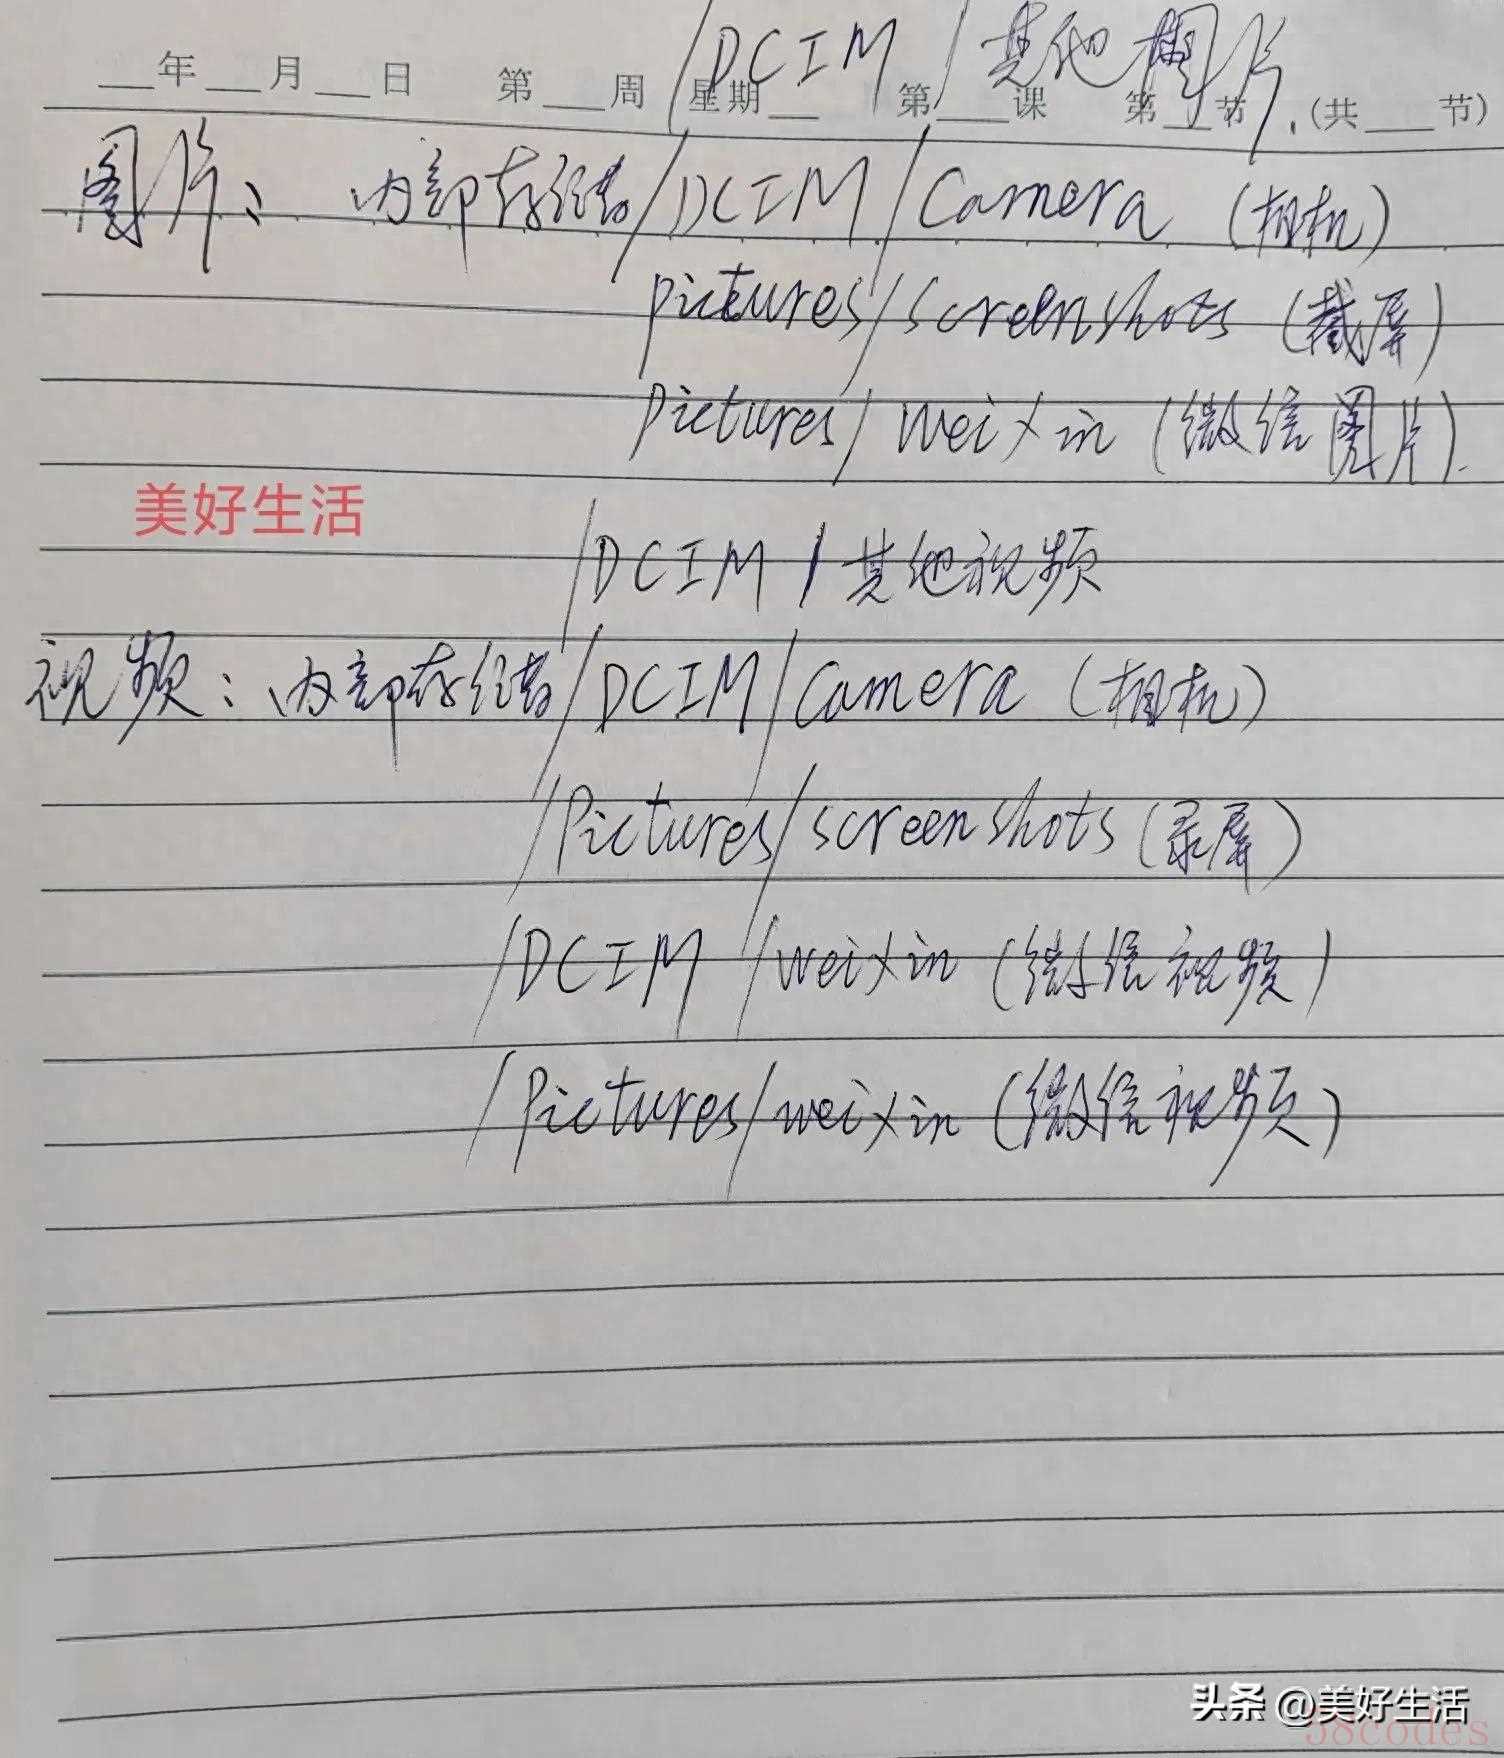 /DCIM/其他图片
__年__月__日 第__周 星期__ 第__课 第__节 (共__节)
图片: 内部存储/DCIM/Camera (相机)
pictures/screenshots (截屏)
pictures/weixin (微信图片)
美好生活
/DCIM/其他视频
视频: 内部存储/DCIM/Camera (相机)
/Pictures/screenshots (录屏)
/DCIM/weixin (微信视频)
/Pictures/weixin (微信视频)
头条 @美好生活
38codes